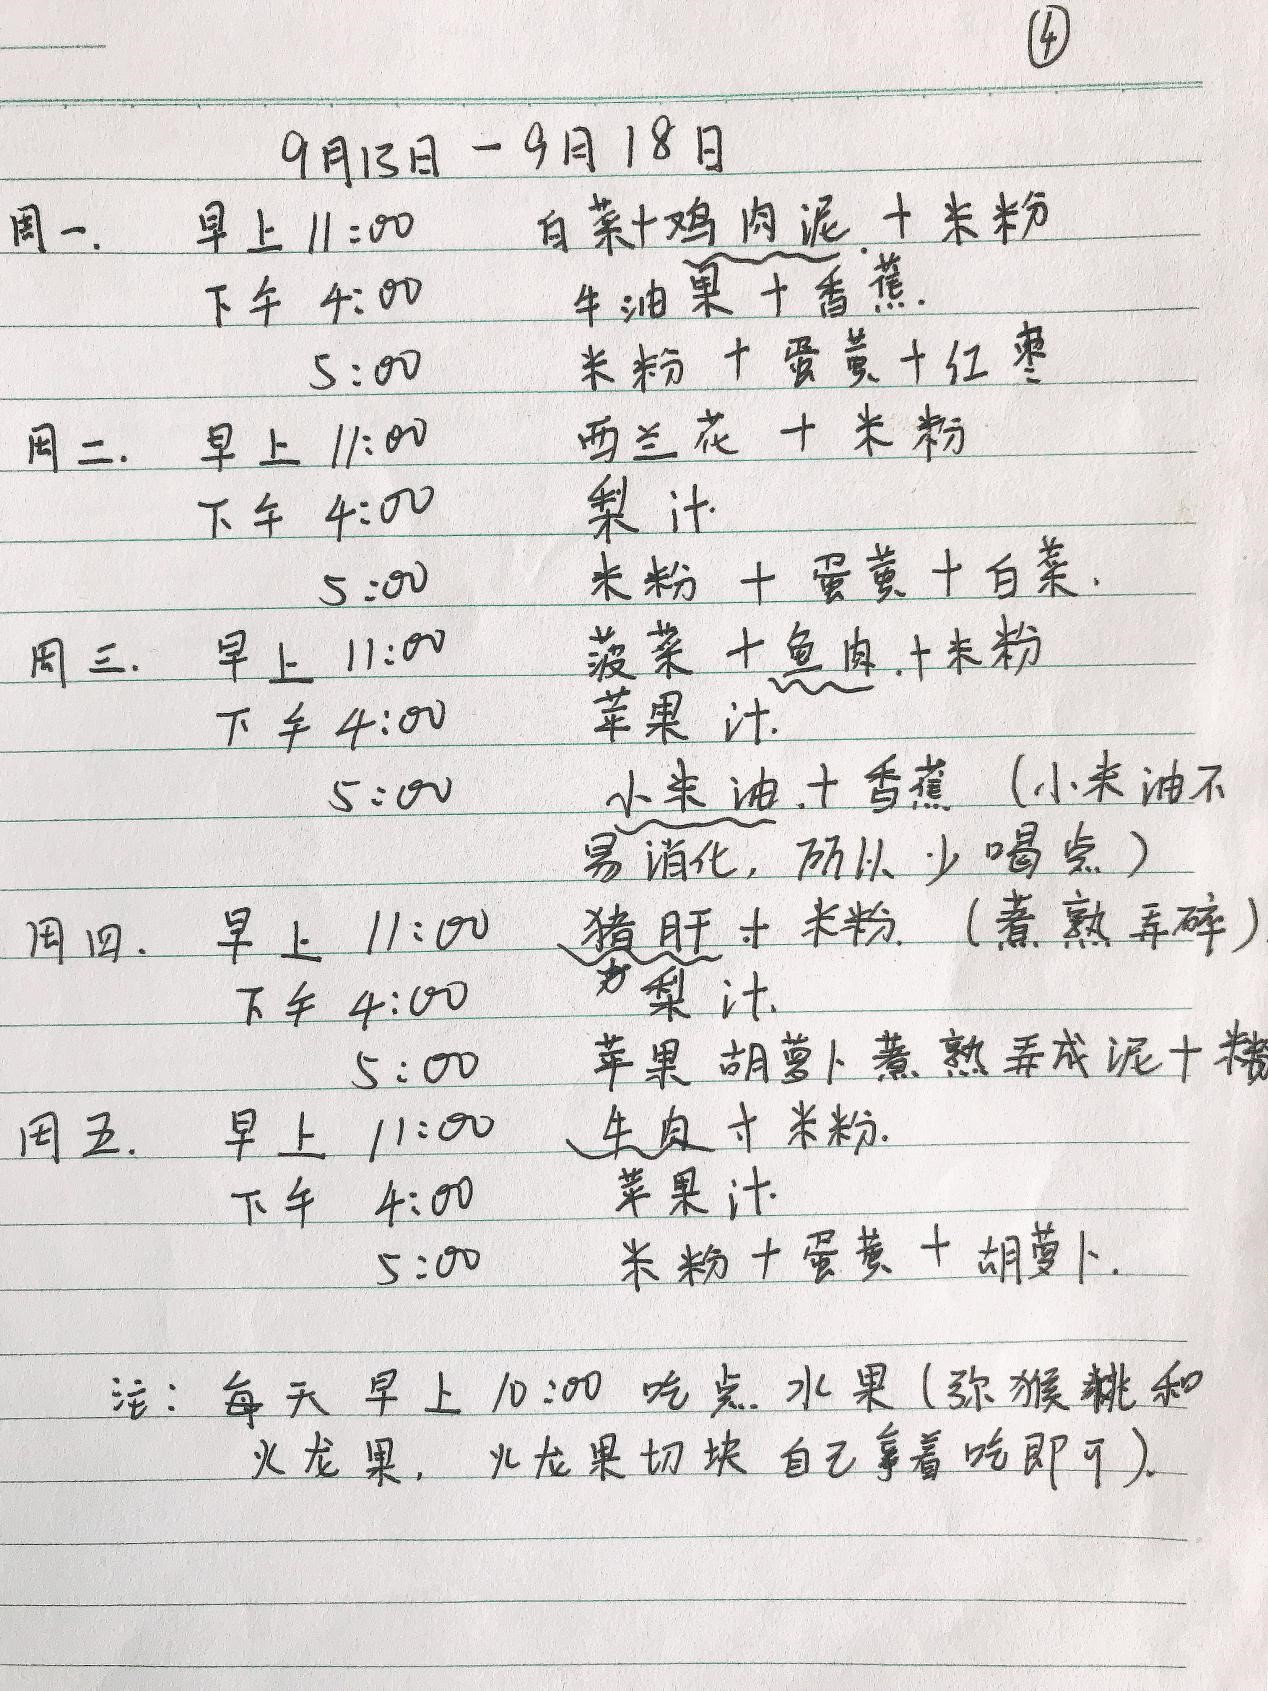 ④
9月13日-9月18日
周一. 早上11:00 白菜+鸡肉泥.+米粉
下午4:00 牛油果+香蕉.
5:00 米粉+蛋黄+红枣
周二. 早上11:00 西兰花+米粉
下午4:00 梨汁.
5:00 米粉+蛋黄+白菜.
周三. 早上11:00 菠菜+鱼肉.+米粉
下午4:00 苹果汁.
5:00 小米油.+香蕉(小米油不
易消化,所以少喝点)
周四. 早上11:00 猪肝+米粉.(煮熟弄碎).
下午4:00 梨汁.
5:00 苹果胡萝卜煮熟弄成泥+
周五. 早上11:00 牛肉+米粉.
下午4:00 苹果汁.
5:00 米粉+蛋黄+胡萝卜.
注:每天早上10:00吃点水果(弥猴桃和
火龙果.火龙果切块自己拿着吃即可).